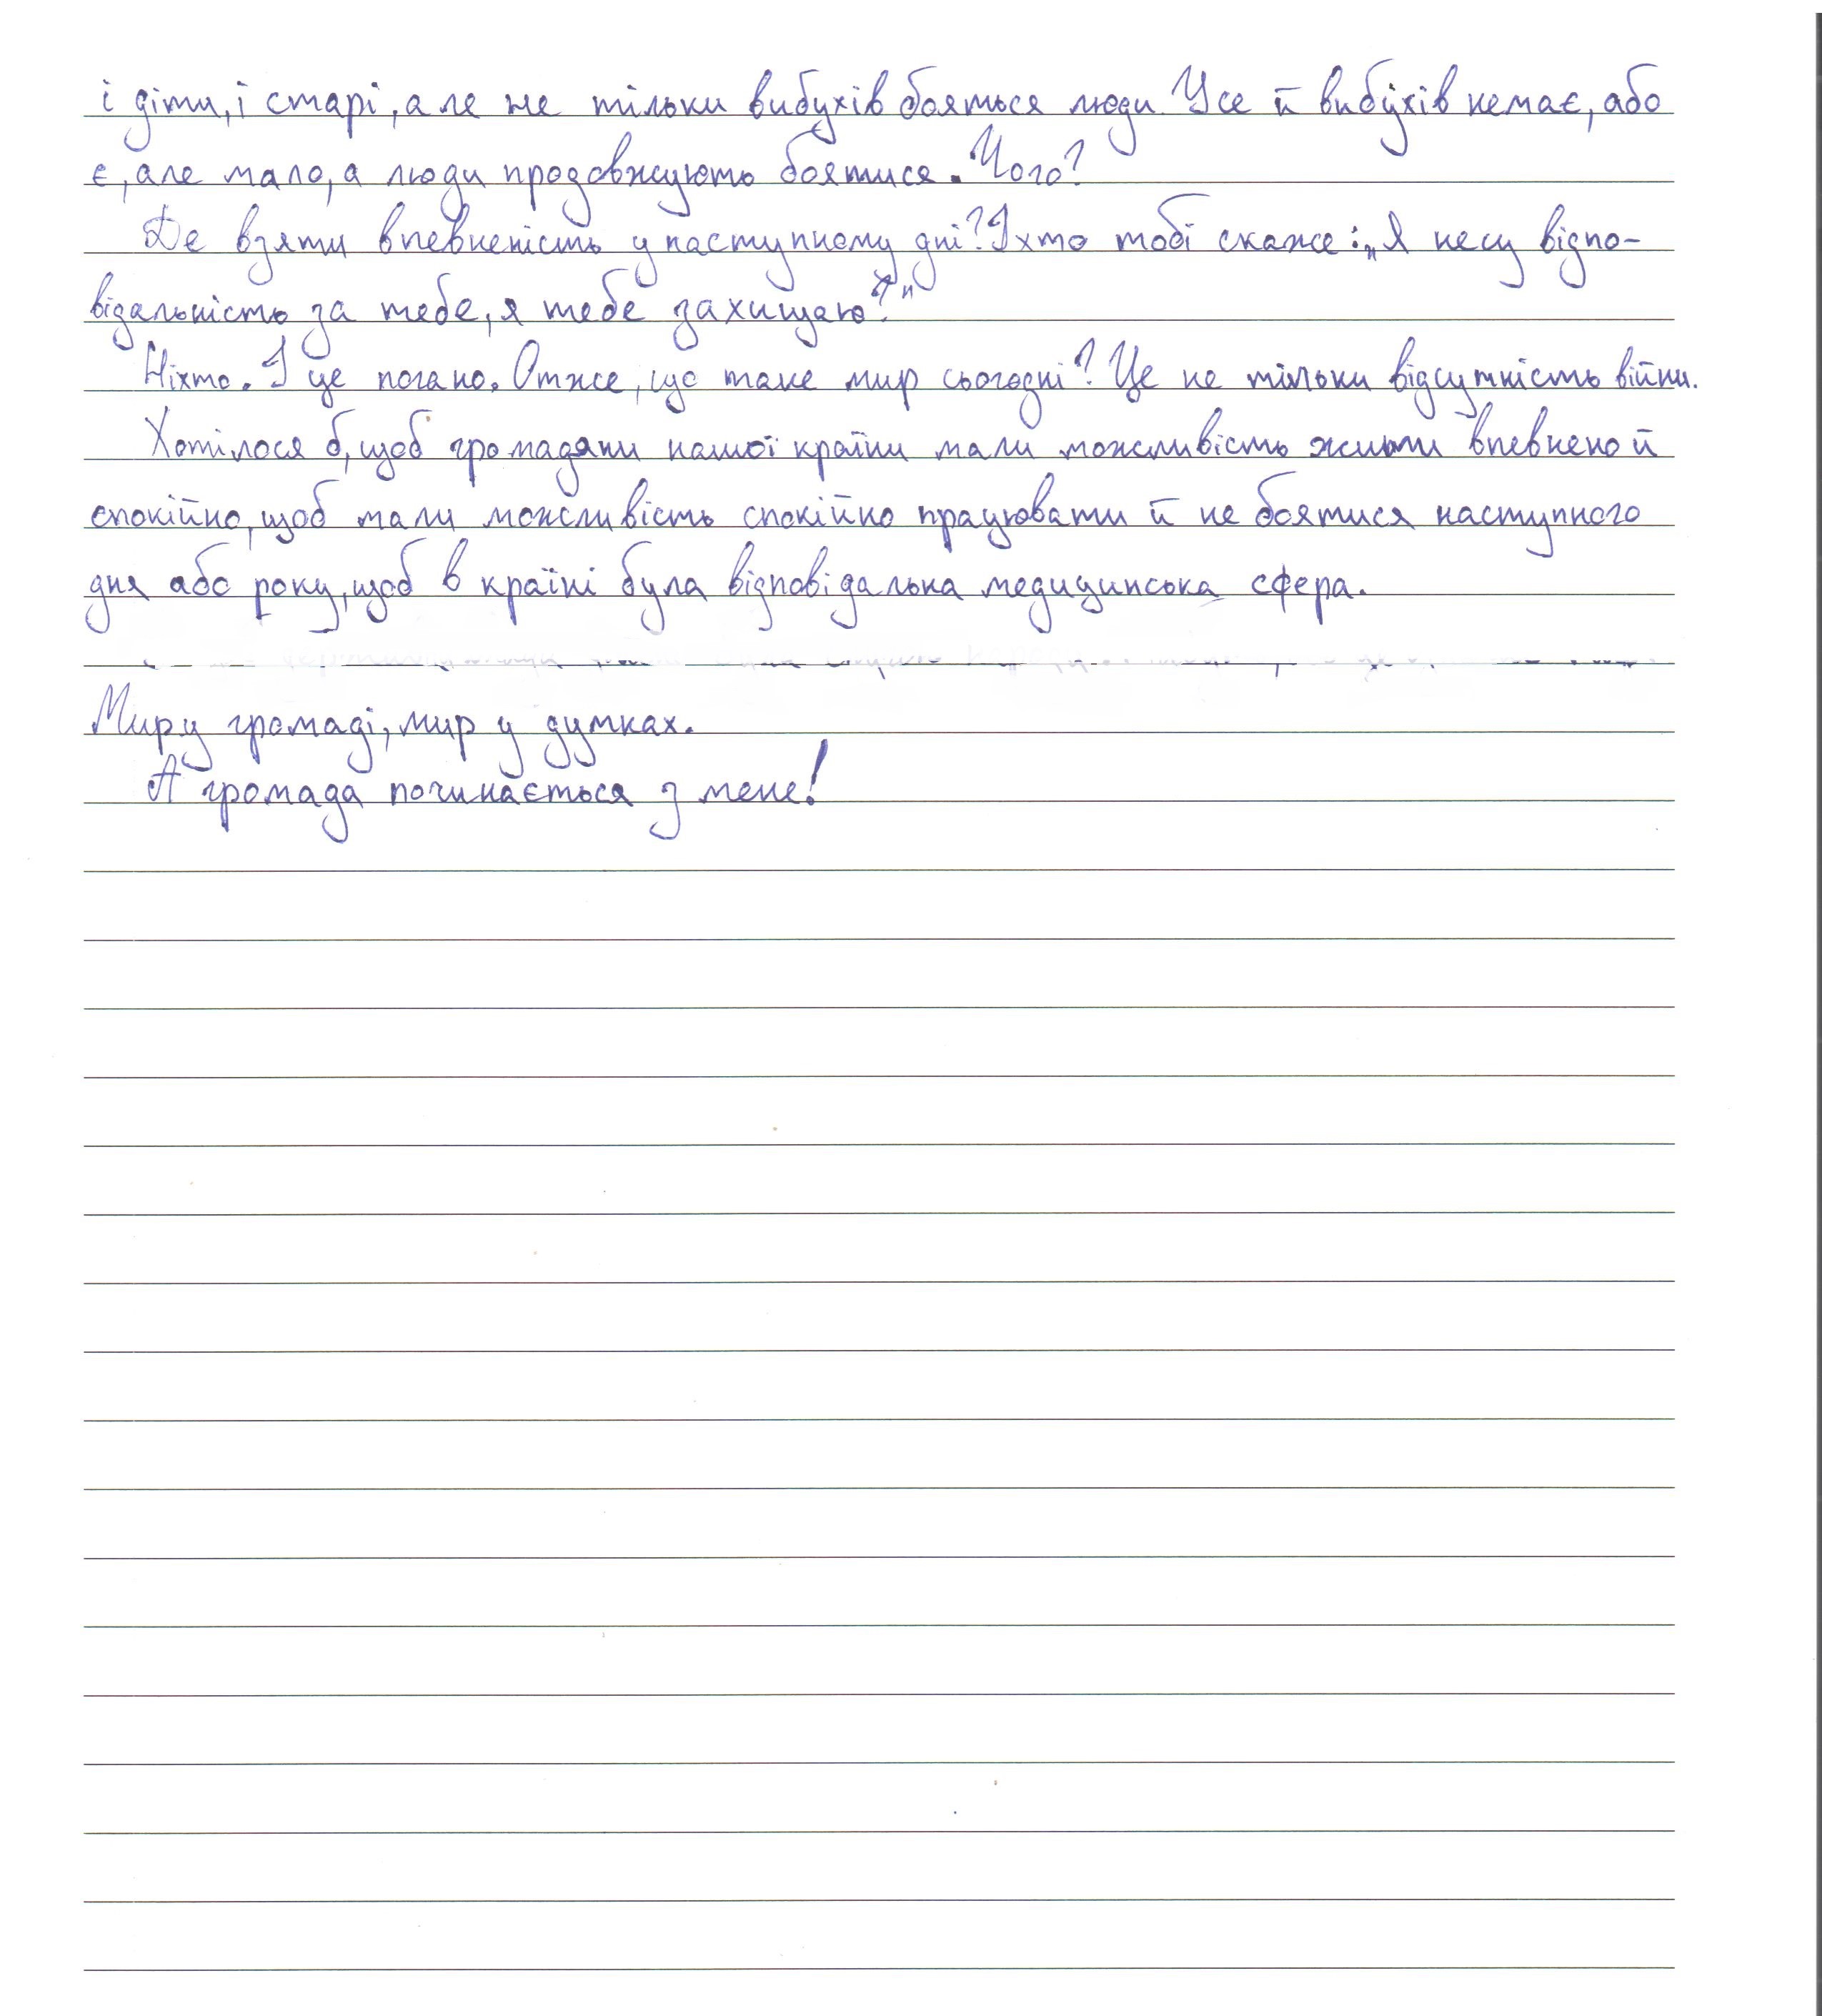 і діти, і старі, але не тільки вибухів бояться люди. Усе й вибухів немає, або
є, але мало, а люди продовжують боятися. Чого?
Де взяти впевненість у наступному дні? І хто тобі скаже: „Я несу відпо-
відальність за тебе, я тебе захищаю?"
Ніхто. І це погано. Отже, що таке мир сьогодні? Це не тільки відсутність війни.
Хотілося б, щоб громадяни нашої країни мали можливість жити впевнено й
спокійно, щоб мали можливість спокійно працювати й не боятися наступного
дня або року, щоб в країні була відповідальна медицинська сфера.
Миру громаді, мир у думках.
А громада починається з мене!